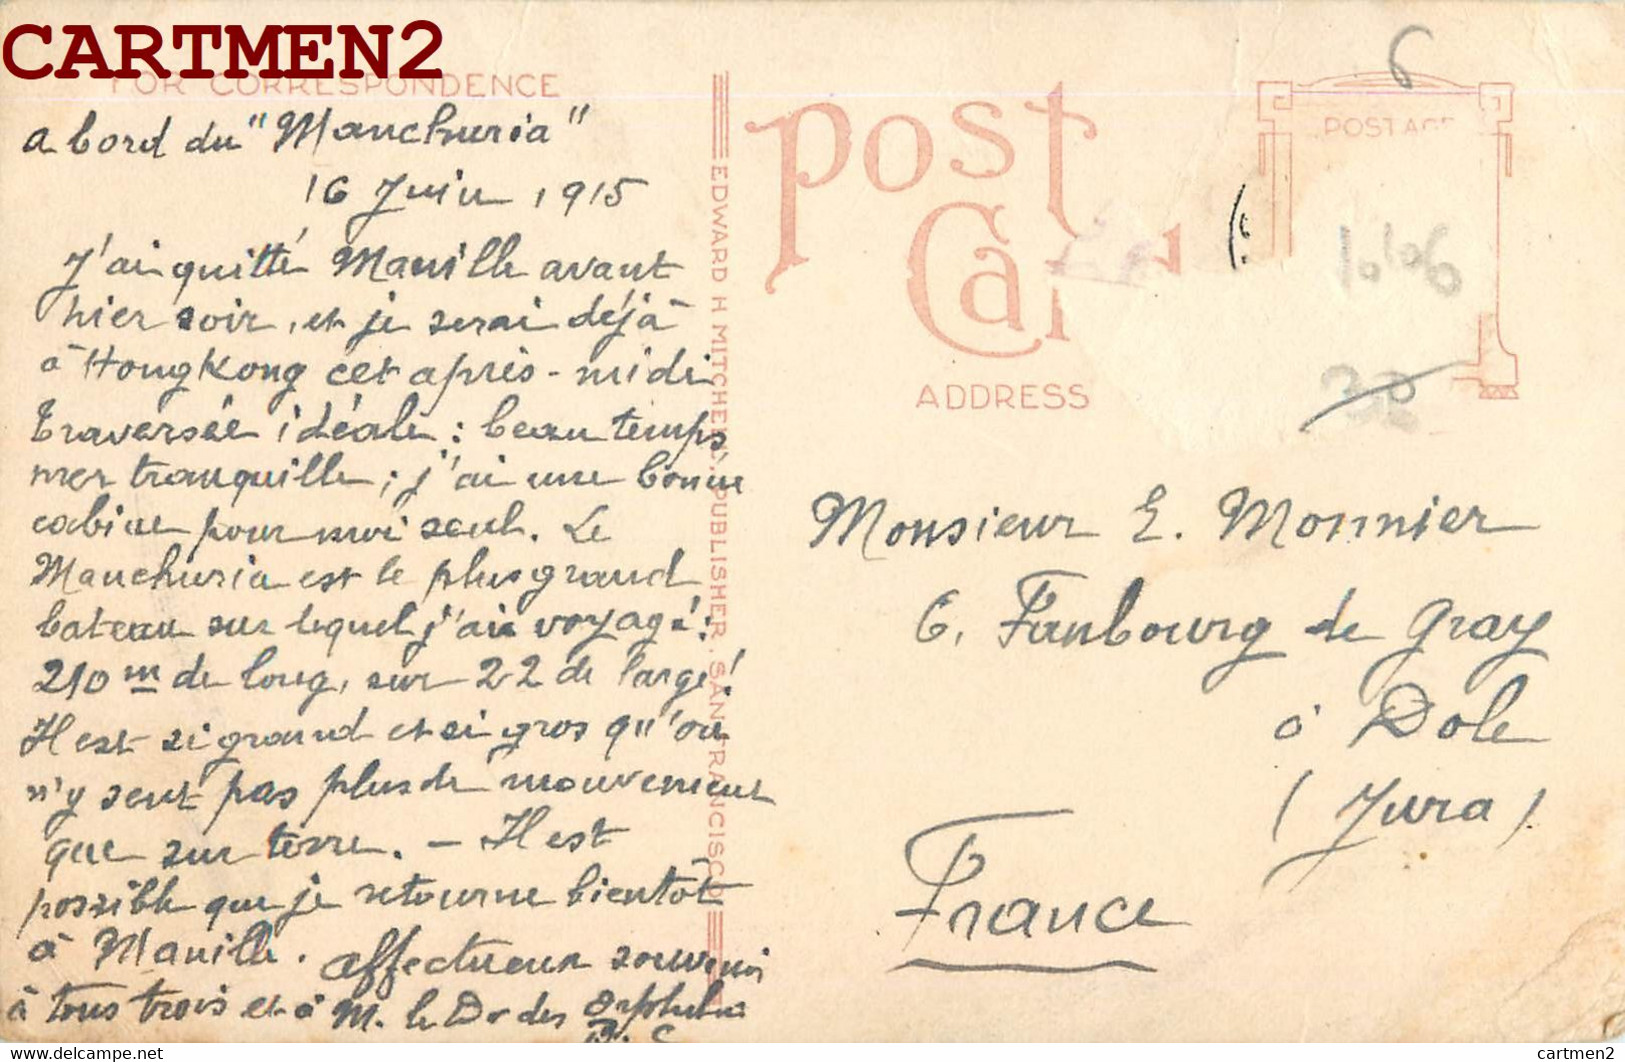 CARTMEN2
FOR CORRESPONDENCE
a bord du "Manchuria"
16 Juin 1915
J'ai quitté Manille avant
hier soir, et je serai déjà
à HongKong cet après-midi
Traversée idéale : beau temps
mer tranquille ; j'ai une bonne
cabine pour moi seul. Le
Manchuria est le plus grand
bateau sur lequel j'ai voyagé :
210 m de long, sur 22 de large !
Il est si grand et si gros qu'on
n'y sent pas plus de mouvement
que sur terre. — Il est
possible que je retourne bientôt
à Manille. affectueux souvenir
à tous trois et à M. le Dr des
EDWARD H MITCHELL, PUBLISHER, SAN FRANCISCO
Post
Car
ADDRESS
POSTAGE
6
Monsieur E. Monnier
6. Faubourg de Gray
à Dole
(Jura)
France
delcampe.net
cartmen2